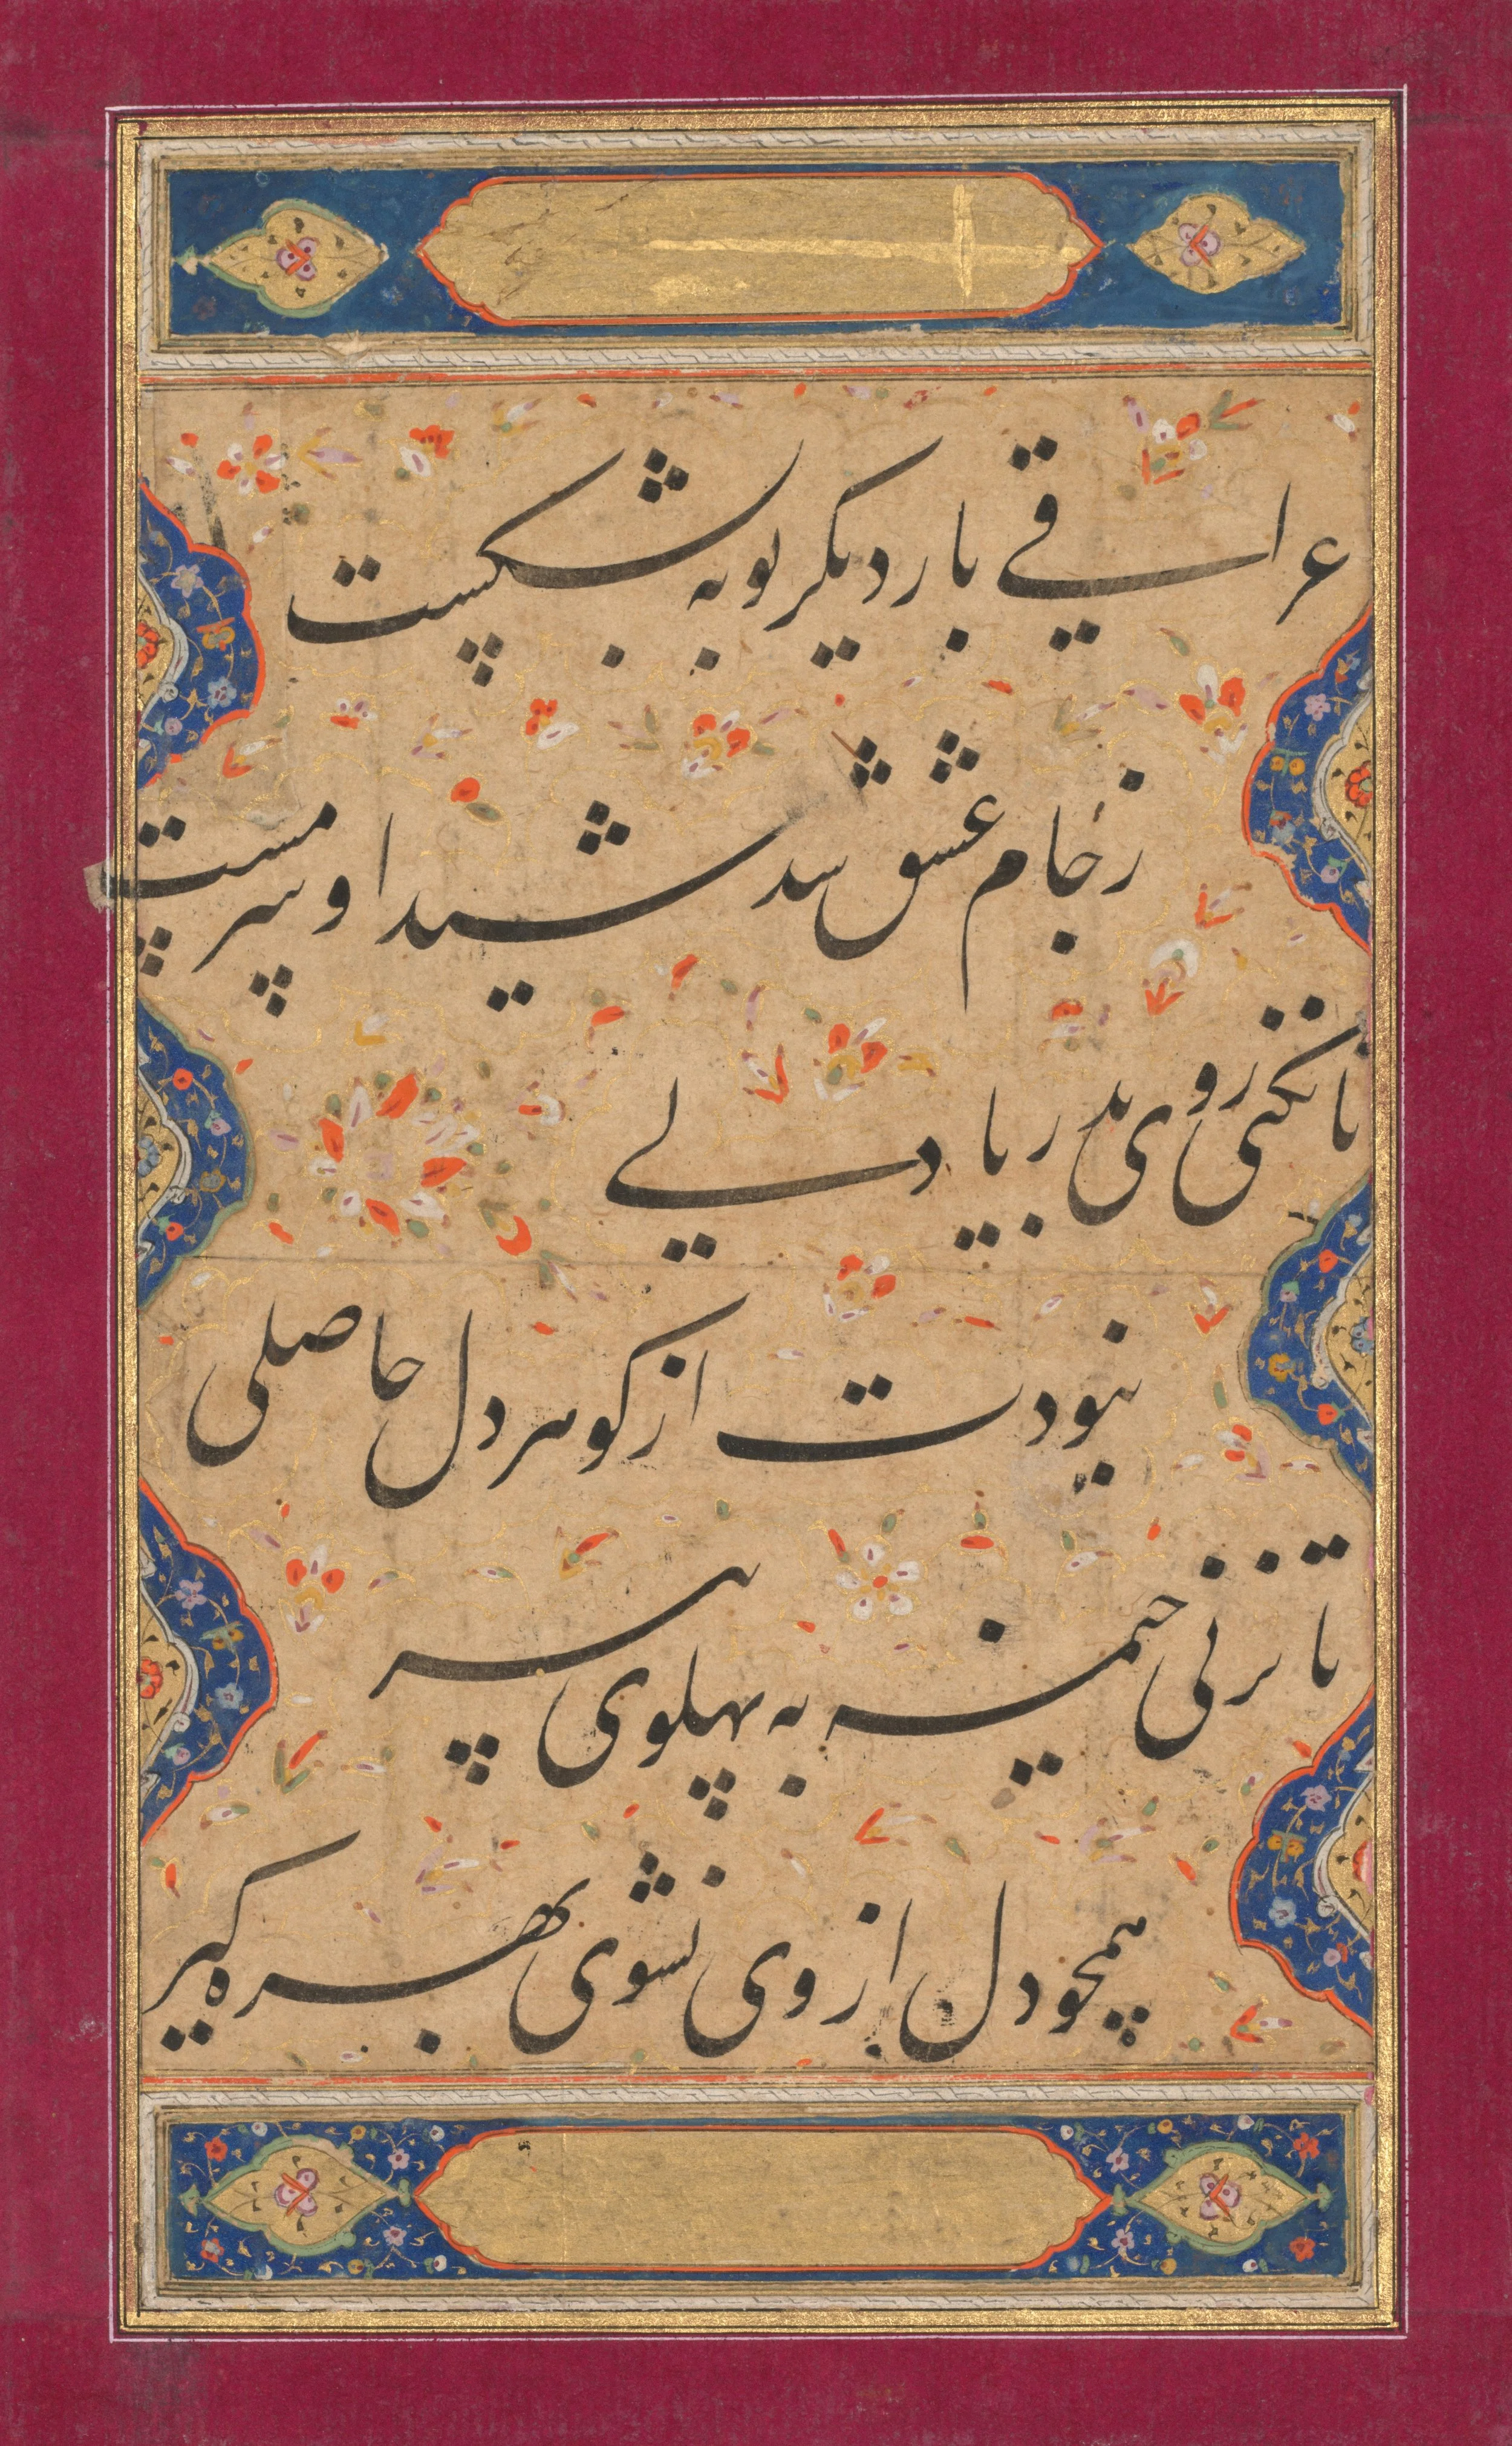 عراقی بار دیگر توبه بشکست
ز جام عشق شد شیدا و سرمست
تا نکنی روی بدریا دلی
نبودت از گوهر دل حاصلی
تا نزنی خیمه به پهلوی
همچو دل از وی نشوی بهره گیر